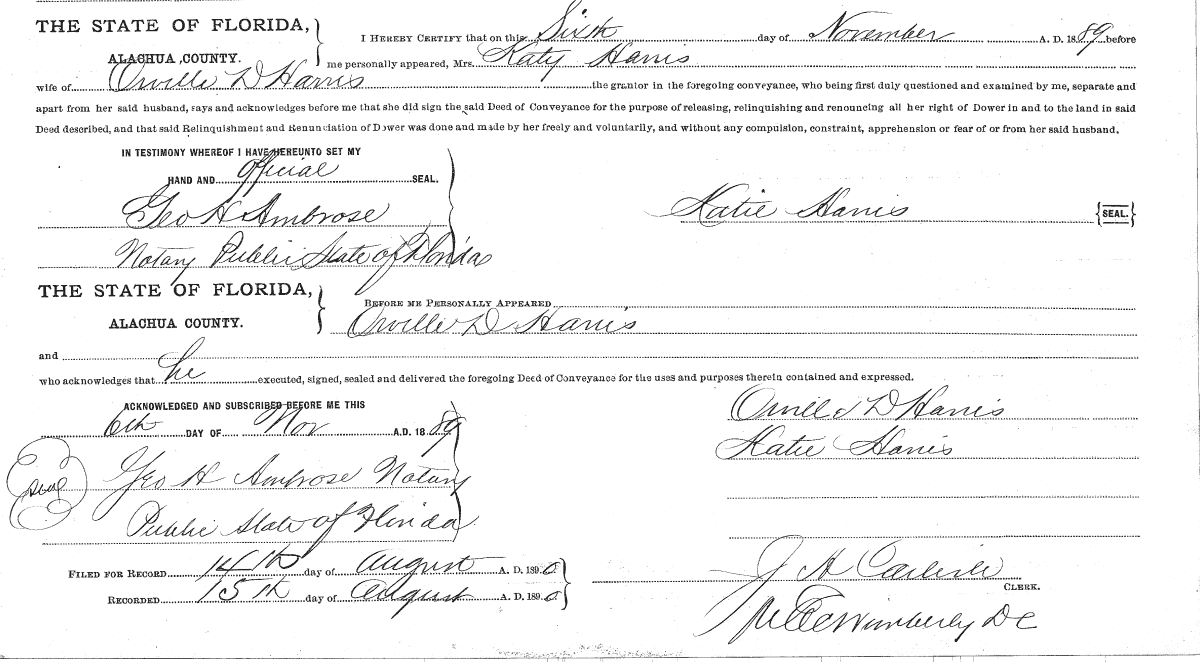 THE STATE OF FLORIDA,
ALACHUA COUNTY.
I HEREBY CERTIFY that on this Sixth day of November A. D. 1889 before
me personally appeared, Mrs. Katy Harris
wife of Orville D Harris the grantor in the foregoing conveyance, who being first duly questioned and examined by me, separate and
apart from her said husband, says and acknowledges before me that she did sign the said Deed of Conveyance for the purpose of releasing, relinquishing and renouncing all her right of Dower in and to the land in said
Deed described, and that said Relinquishment and Renunciation of Dower was done and made by her freely and voluntarily, and without any compulsion, constraint, apprehension or fear of or from her said husband.
IN TESTIMONY WHEREOF I HAVE HEREUNTO SET MY
HAND AND official SEAL.
Geo H Ambrose
Katie Harris {SEAL.}
Notary Public State of Florida
THE STATE OF FLORIDA,
ALACHUA COUNTY.
BEFORE ME PERSONALLY APPEARED
Orville D Harris
and
who acknowledges that he executed, signed, sealed and delivered the foregoing Deed of Conveyance for the uses and purposes therein contained and expressed.
ACKNOWLEDGED AND SUBSCRIBED BEFORE ME THIS
6th DAY OF Nov A.D. 1889
Orville D Harris
Katie Harris
Seal
Geo H Ambrose Notary
Public State of Florida
FILED FOR RECORD 14th day of August A. D. 1890
RECORDED 15th day of August A. D. 1890
J H Carlisle
CLERK.
Wimberly DC